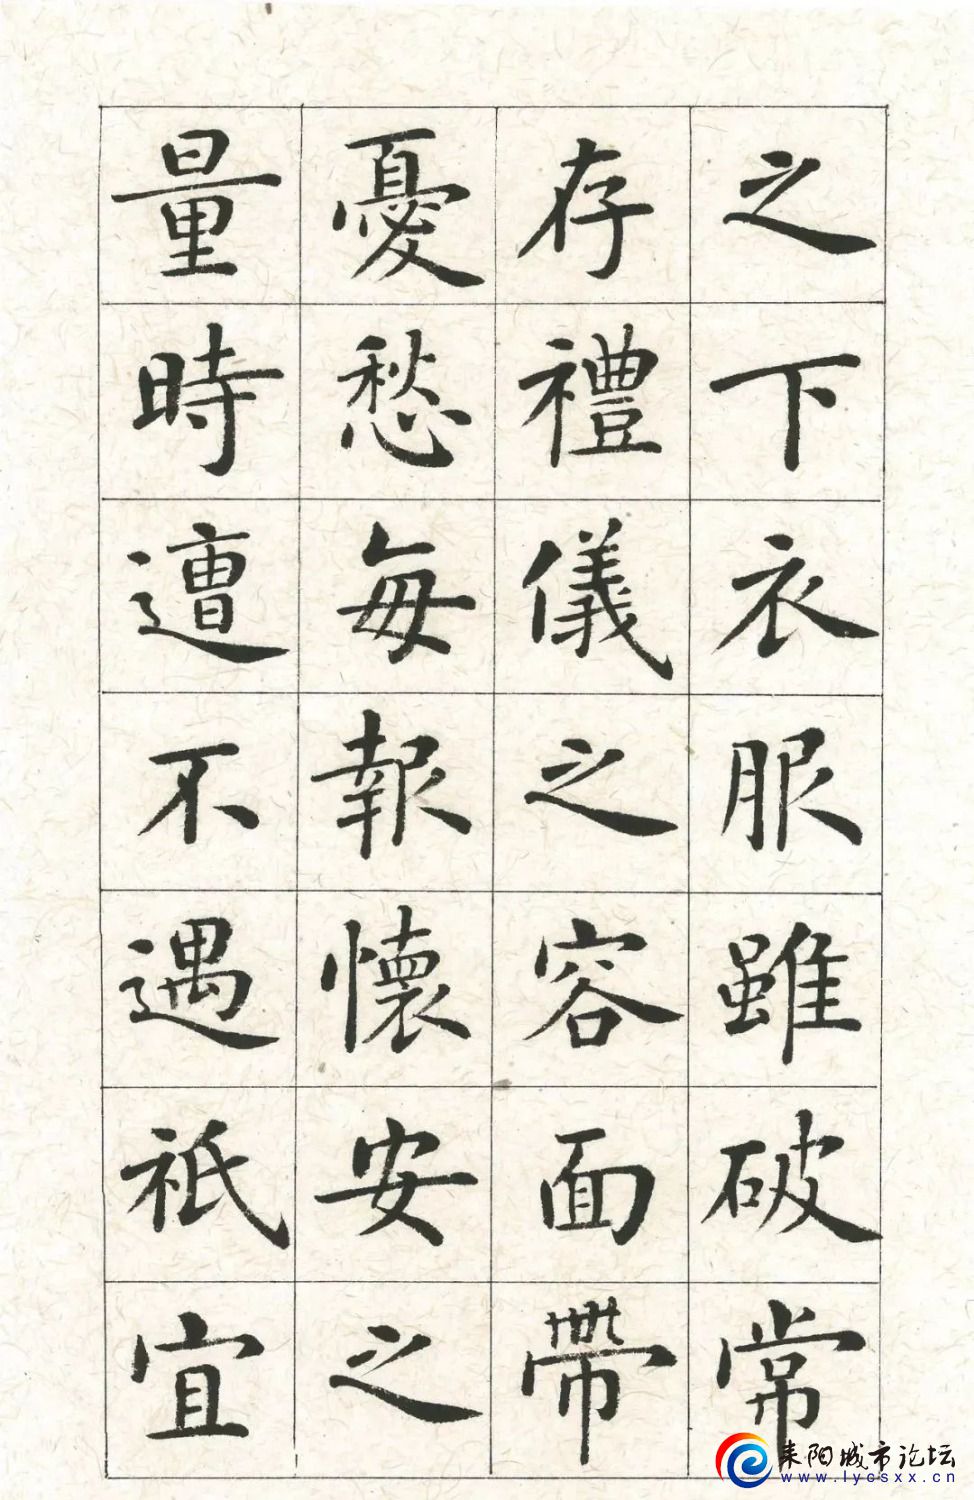 之下衣服雖破常
存禮儀之容面帶
憂愁每報懷安之
量時遭不遇祇宜
耒阳城市论坛
www.lycsxx.cn